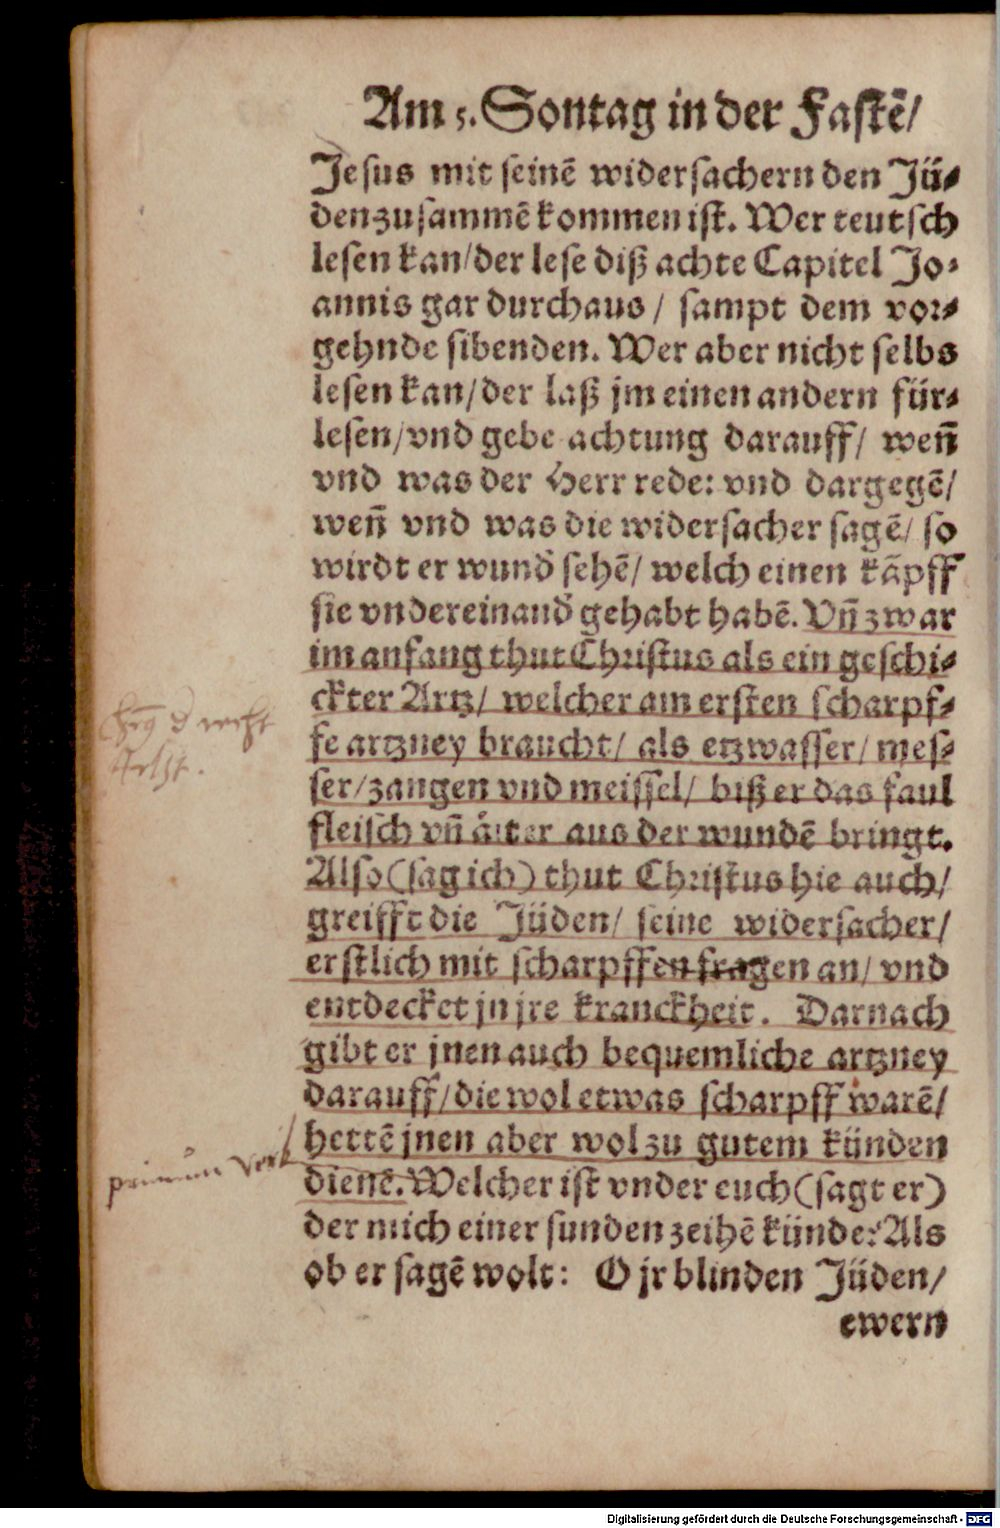 Am 5. Sontag in der Fastē/
Jesus mit seinē widersachern den Jü⸗
den zusammē kommen ist. Wer teutsch
lesen kan/der lese diß achte Capitel Jo⸗
annis gar durchaus / sampt dem vor⸗
gehnde sibenden. Wer aber nicht selbs
lesen kan/der laß jm einen andern für⸗
lesen/vnd gebe achtung darauff/ weñ
vnd was der Herr rede: vnd dargegē/
weñ vnd was die widersacher sagē/ so
wirdt er wund' sehē/ welch einen kāpff
sie vndereinand' gehabt habē. Vñ zwar
im anfang thut Christus als ein geschi⸗
ckter Artz/ welcher am ersten scharpf⸗
fe artzney braucht/ als etzwasser/ mes⸗
ser/zangen vnd meissel/ biß er das faul
fleisch vñ äiter aus der wundē bringt.
Also (sag ich) thut Christus hie auch/
greifft die Jüden/ seine widersacher/
erstlich mit scharpffen fragen an/ vnd
entdecket jn jre kranckheit. Darnach
gibt er jnen auch bequemliche artzney
darauff/die wol etwas scharpff warē/
hettē jnen aber wol zu gutem künden
dienē. Welcher ist vnder euch (sagt er)
der mich einer sunden zeihē künde? Als
ob er sagē wolt: O jr blinden Jüden/
ewern
primum
Digitalisierung gefördert durch die Deutsche Forschungsgemeinschaft - DFG